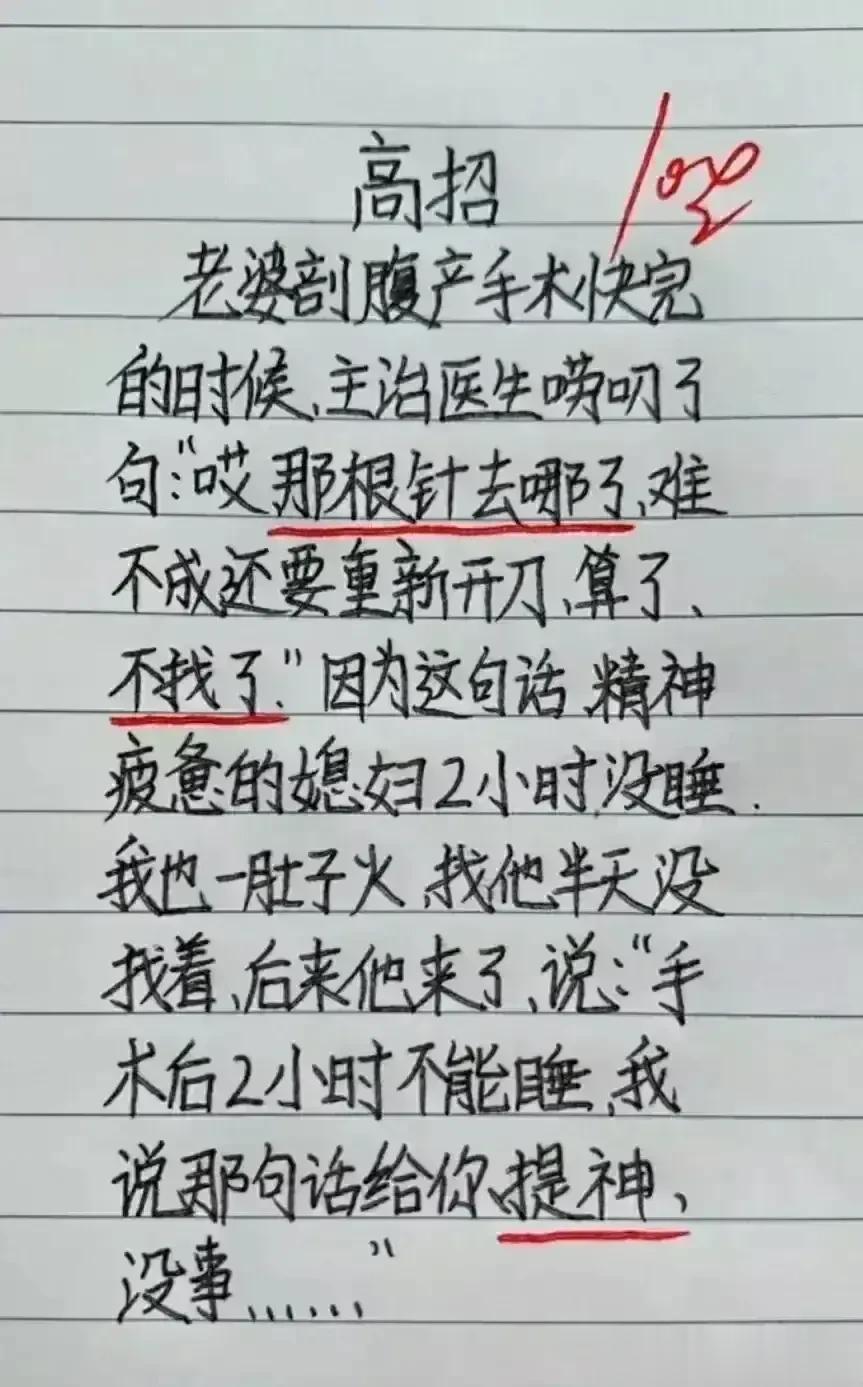 高招
100
老婆剖腹产手术快完
的时候、主治医生唠叨了
句:“哎,那根针去哪了、难
不成还要重新开刀、算了、
不找了.”因为这句话、精神
疲惫的媳妇2小时没睡.
我也一肚子火、找他半天没
找着、后来他来了、说:“手
术后2小时不能睡、我
说那句话给你、提神、
没事......”